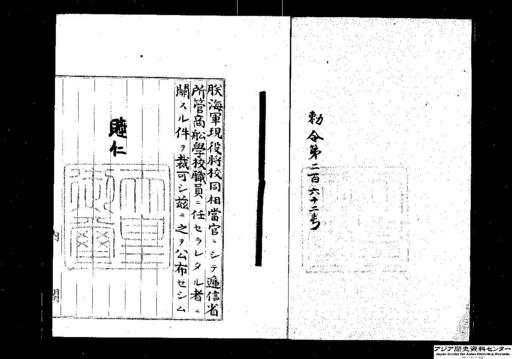 勅令第二百六十二号
朕海軍現役将校同相當官ニシテ遞信省
所管商舩學校職員ニ任セラレタル者ニ
關スル件ヲ裁可シ茲ニ之ヲ公布セシム
睦仁
天皇御璽
内閣
アジア歴史資料センター
Japan Center for Asian Historical Records